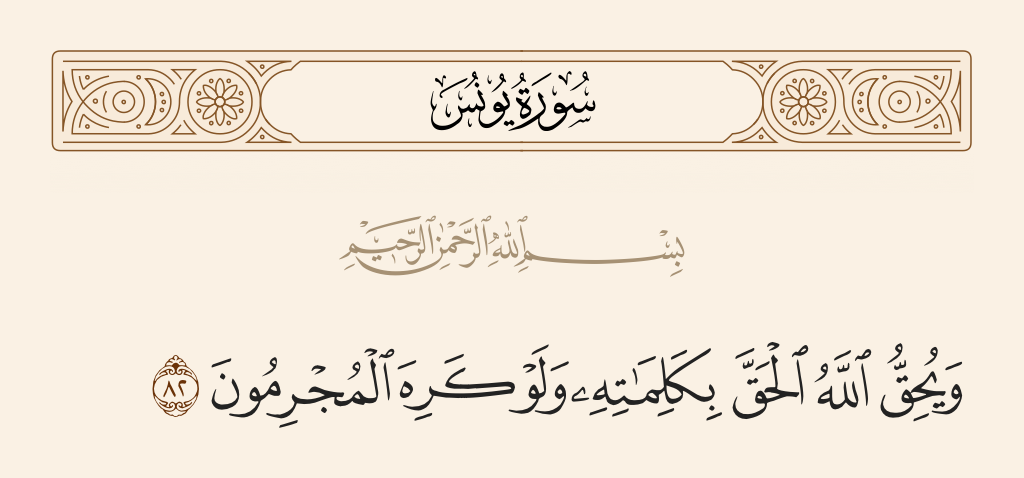 سُورَةُ يُونُسَ
بِسْمِ ٱللَّهِ ٱلرَّحْمَٰنِ ٱلرَّحِيمِ
وَيُحِقُّ ٱللَّهُ ٱلْحَقَّ بِكَلِمَٰتِهِۦ وَلَوْ كَرِهَ ٱلْمُجْرِمُونَ ٨٢